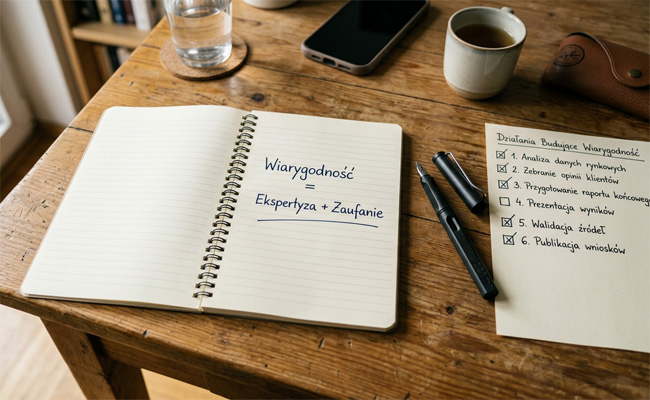 Wiarygodność
=
Ekspertyza + Zaufanie
Działania Budujące Wiarygodność
1. Analiza danych rynkowych
2. Zebranie opinii klientów
3. Przygotowanie raportu końcowego
4. Prezentacja wyników
5. Walidacja źródeł
6. Publikacja wniosków